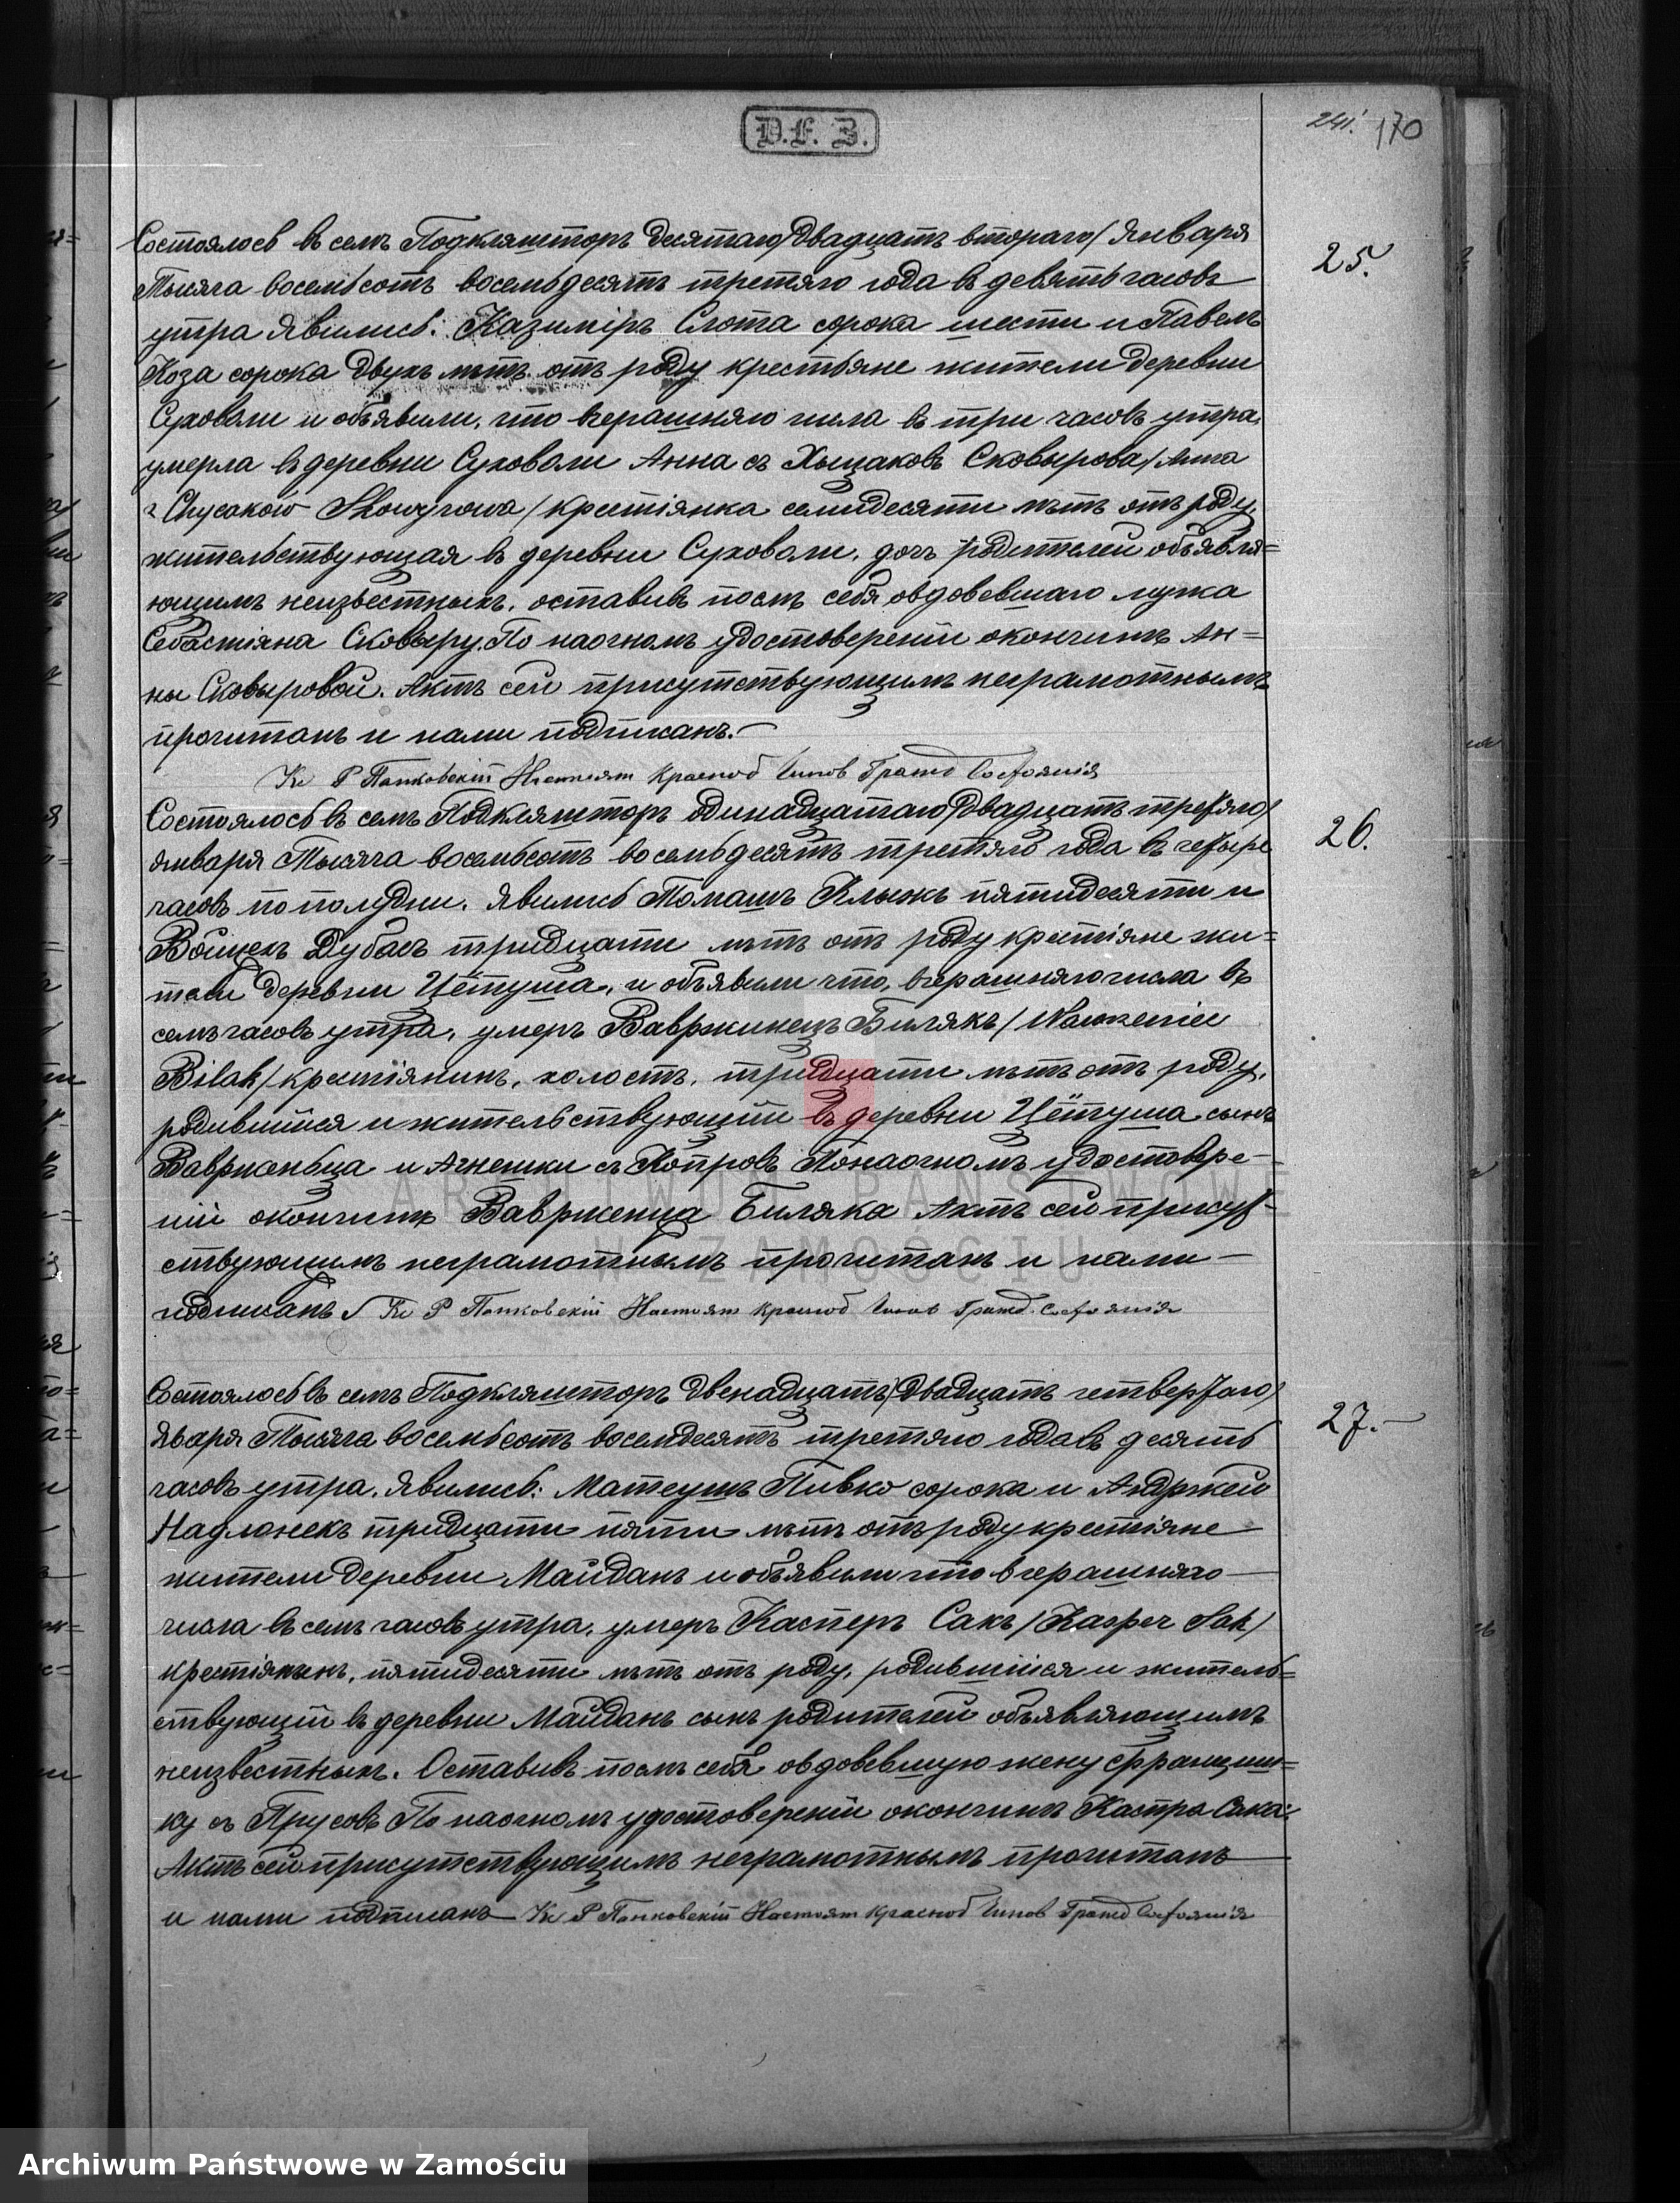 D.E.Z.
241. 170
25.
Состоялось въ селѣ Подкляшторъ десятаго /двадцать втораго/ Января
Тысяча восемьсотъ восемьдесятъ третяго года въ девять часовъ
утра явились: Казиміръ Слота сорока шести и Павелъ
Коза сорока двухъ лѣтъ отъ роду крестьяне жители деревни
Суховоли и объявили, что вчерашняго числа въ три часовъ утра,
умерла въ деревни Суховоли Анна съ Хыцаковъ Сковырова /Anna
z Chycaków Skowyrowa/ крестіянка семидесяти лѣтъ отъ роду,
жительствующая въ деревни Суховоли, дочь родителей объявля=
ющимъ неизвестныхъ, оставивъ послѣ себя овдовевшаго мужа
Себастіяна Сковыру. По наочномъ удостоверении окончинѣ Ан=
ны Сковыровой. Актъ сей присутствующимъ неграмотнымъ
прочитанъ и нами подписанъ.—
Кс Р Панковскій Настоят Красноб Чинов Гражд Состоянія
26.
Состоялось въ селѣ Подкляшторъ одинадцатаго /двадцать третяго/
января Тысяча восемьсотъ восемьдесятъ третяго года въ четыре
часовъ по полудни. Явились Томашъ Клыжъ пятидесяти и
Войцехъ Дубасъ тридцати лѣтъ отъ роду крестіяне жи=
тели деревни Цѣтуша, и объявили что, вчерашняго числа въ
семъ часовъ утра, умеръ Вавржинецъ Билякъ /Wawrzeniec
Bilak/ крестіянинъ, холостъ, тридцати лѣтъ отъ роду,
родившійся и жительствующій въ деревни Цѣтуша сынъ
Ваврженьца и Агнешки съ Копровъ По наочномъ удостовере—
ніи окончинѣ Ваврженьца Биляка Актъ сей присут=
ствующимъ неграмотнымъ прочитанъ и нами —
подписанъ Кс Р Панковскій Настоят Красноб Чинов Гражд. Состоянія
27.—
Состоялось въ селѣ Подкляшторъ двенадцатъ /двадцать четвертаго/
Яваря Тысяча восемьсотъ восемдесятъ третяго года въ десять
часовъ утра. Явились: Матеушъ Пивко сорока и Андржей
Надлонекъ тридцати пяти лѣтъ отъ роду крестіяне —
жители деревни Майданъ и объявили что вчерашняго —
числа въ семъ часовъ утра, умеръ Касперъ Сакъ /Kasper Sak/
крестіянинъ, пятидесяти лѣтъ отъ роду, родившійся и житель=
ствующій въ деревни Майданъ сынъ родителей объявляющимъ
неизвестныхъ. Оставивъ послѣ себя овдовевшую жену Францишъ=
ку съ Прусовъ По наочномъ удостоверении окончинѣ Каспра Сака.
Актъ сей присутствующимъ неграмотнымъ прочитанъ —
и нами подписанъ— Кс Р Панковскій Настоят Красноб Чинов Гражд Состоянія
ARCHIWUM PAŃSTWOWE
W ZAMOŚCIU
Archiwum Państwowe w Zamościu